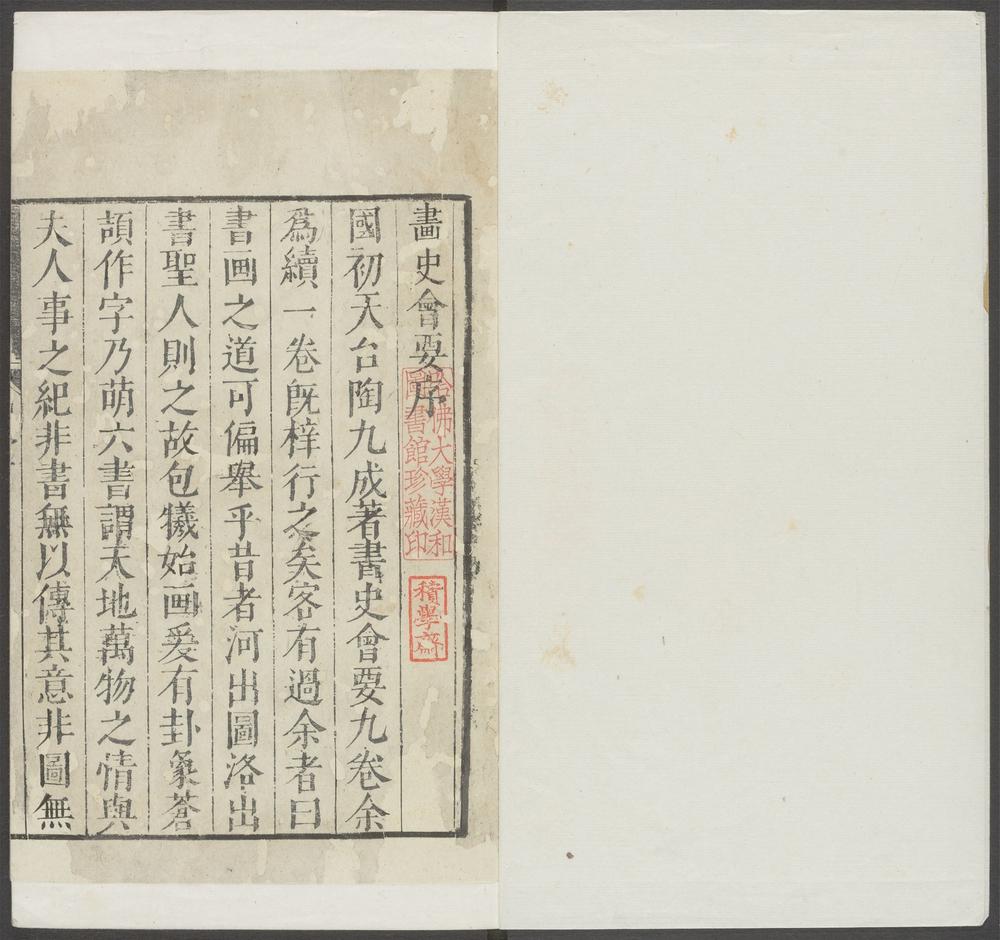 畵史會要序
國初天台陶九成著書史會要九卷余
爲續一卷旣梓行之矣客有過余者曰
書画之道可偏舉乎昔者河出圖洛出
書聖人則之故包犧始画爰有卦象蒼
頡作字乃萌六書謂天地萬物之情與
夫人事之紀非書無以傳其意非圖無
哈佛大學漢和
圖書館珍藏印
積學齋